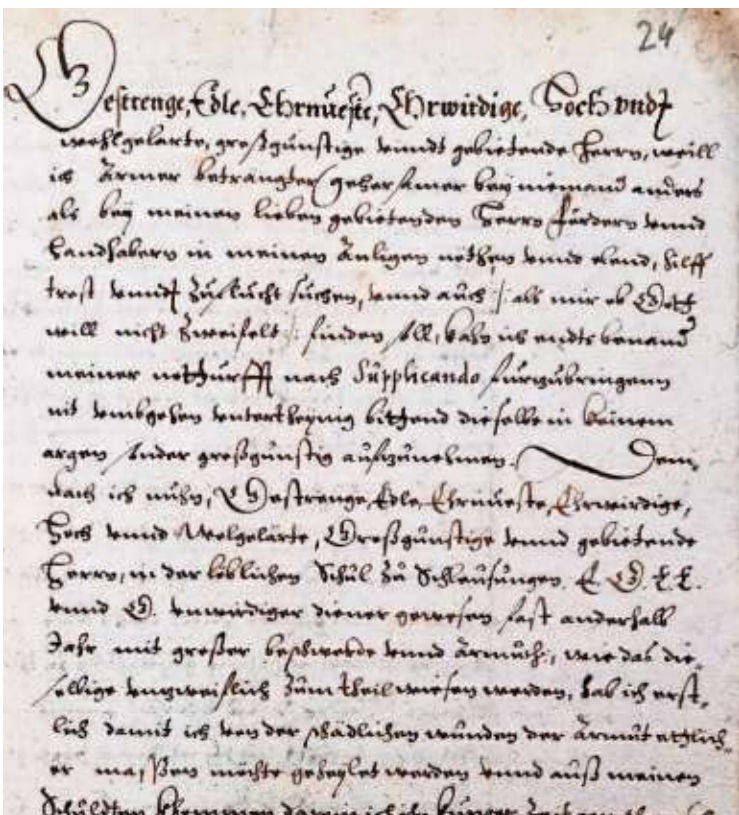 24
Gestrenge, Edle, Ehrnueste, Ehrwirdige, Hoch vndt
wohlgelarte, großgünstige vnndt gebietende Herrn, weill
ich Armer betrangter gehorsamer bey niemand anders
als bey meinen lieben gebietenden Herrn fördern vnnd
handhabern in meinen Anligen nöthen vnnd elend, hilff
trost vnndt Zuflucht suchen, vnnd auch /: als mir ob Gott
will nicht Zweifelt :/ finden soll, kahn ich
meiner notturfft nach Supplicando fürzubringenn
nit vmbgehen vntertheynig bittend dieselbe in keinem
argen sonder großgünstig aufzunehmen. Dem
nach ich nuhn, Gestrenge, Edle, Ehrnueste, Ehrwirdige,
Hoch vnnd Wolgelarte, Großgünstige vnnd gebietende
Herrn, in der löblichen Schul zu Schleusungen E. G. E. E.
vnnd G. vnwirdiger diener gewesen fast anderhalb
Jahr mit großer beschwerde vnnd Armuth, wie das die„
selbige vngweiflich zum theil wissen werden, hab ich erst„
lich damit ich von der schädlichen wunden der Armut etzlich„
er massen möchte geheylet werden vnnd auß meinen
Schuldten khommen darein ich kurtzer Zeit